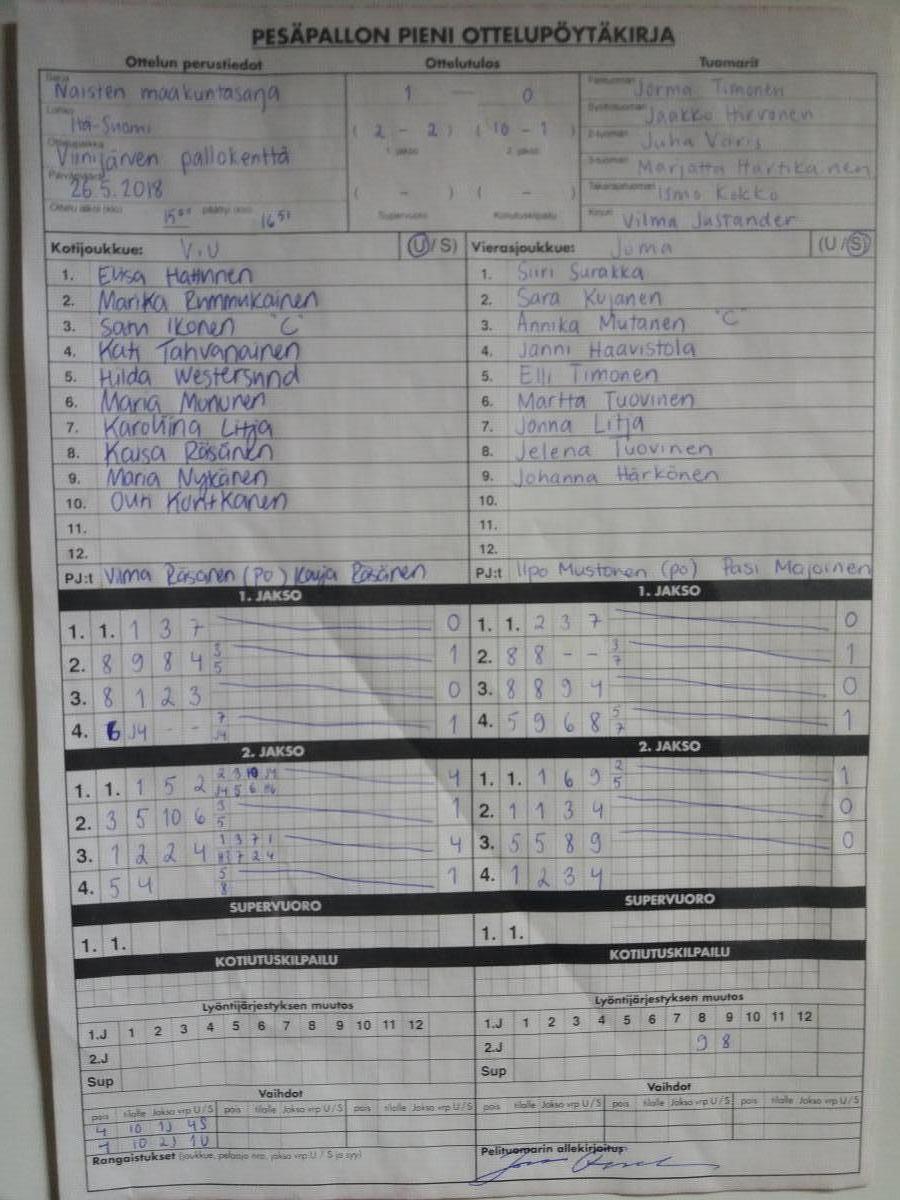 PESÄPALLON PIENI OTTELUPÖYTÄKIRJA
Ottelun perustiedot Ottelutulos Tuomarit
Sarja Naisten maakuntasarja 1 — 0 Pelituomari Jorma Timonen
Lohko Itä-Suomi ( 2 - 2 ) ( 10 - 1 ) Syöttötuomari Jaakko Hirvonen
1. jakso 2. jakso 2-tuomari Juha Väris
Ottelupaikka Viinijärven pallokenttä 3-tuomari Marjatta Hartikainen
Päivämäärä 26.5.2018 ( - ) ( - ) Takarajatuomari Ismo Kokko
Ottelu alkoi (klo) 15⁰⁰ päättyi (klo) 16⁵¹ Supervuoro Kotiutuskilpailu Kirjuri Vilma Justander
Kotijoukkue: ViU (U/S) Vierasjoukkue: Joma (U/S)
1. Elisa 1. Siiri Surakka
2. Marika 2. Sara Kujanen
3. Sari Ikonen "C" 3. Annika Mutanen "C"
4. Kati Tahvanainen 4. Janni Haavistola
5. Hilda 5. Elli Timonen
6. Maria Mununen 6. Martta Tuovinen
7. Karoliina Litja 7. Jonna Litja
8. Kaisa Räsänen 8. Jelena Tuovinen
9. Maria Nykänen 9. Johanna Härkönen
10. Outi Kontkanen 10.
11. 11.
12. 12.
PJ:t Vilma Räsänen (po) Kaija Räsänen PJ:t Ilpo Mustonen (po) Pasi Majoinen
1. JAKSO 1. JAKSO
1. 1. 1 3 7 0 1. 1. 2 3 7 0
2. 8 9 8 4 3 5 1 2. 8 8 - - 3 7 1
3. 8 1 2 3 0 3. 8 8 9 4 0
4. 6 J4 - - 7 J4 1 4. 5 9 6 8 5 7 1
2. JAKSO 2. JAKSO
1. 1. 1 5 2 2 3 10 J4 4 1. 1. 1 6 9 2 5 1
J4 5 6
2. 3 5 10 6 3 5 1 2. 1 1 3 4 0
3. 1 2 2 4 1 3 7 1 4 3. 5 5 8 9 0
7 2 4
4. 5 4 5 8 1 4. 1 2 3 4
SUPERVUORO SUPERVUORO
1. 1. 1. 1.
KOTIUTUSKILPAILU KOTIUTUSKILPAILU
Lyöntijärjestyksen muutos Lyöntijärjestyksen muutos
1.J 1 2 3 4 5 6 7 8 9 10 11 12 1.J 1 2 3 4 5 6 7 8 9 10 11 12
2.J 2.J 9 8
Sup Sup
Vaihdot Vaihdot
pois tilalle Jakso vrp U/S pois tilalle Jakso vrp U/S pois tilalle Jakso vrp U/S pois tilalle Jakso vrp U/S pois tilalle Jakso vrp U/S pois tilalle Jakso vrp U/S
4 10 1J 4S
10 2J 1U
Rangaistukset (joukkue, pelaaja nro, jakso vrp U / S ja syy) Pelituomarin allekirjoitus